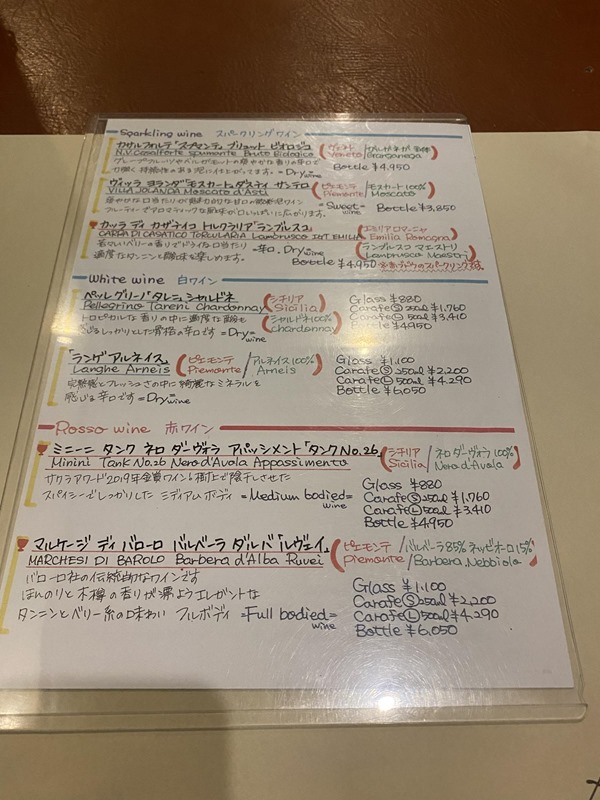 Sparkling wine スパークリングワイン
カサルフォルテ「スプマンテ ブリュット ビオロジコ (ヴェネト /ガルガネガ 主体
N.V. Casalforte spumante Brute Biologica Veneto Garganega)
グレープフルーツやメルがモットの爽やかな香りの辛口で
力強く 持続性のある泡に仕上がってます。=Dry wine Bottle ¥4,950
ヴィッラ ヨランダ「モスカート」ダスティ サンテロ (ピエモンテ /モスカート 100%
VILLA JOLANDA Moscato d'Asti Piemonte Moscato)
穏やかな口当たりが魅力的な甘口の微発泡ワイン =Sweet= wine Bottle ¥3,850
フルーティーでアロマティックな風味が口いっぱいに広がります。
カッサ ディ カザティコ トレクラリア「ランブルスコ」 (エミリアロマーニャ
CA'RPA DI CASATICO TORCULARIA Lambrusco IGT EMILIA Emilia Romagna)
若々しいベリーの香りでドライな口当たり =辛口, Dry wine (ランブルスコ マエストリ
適度なタンニンと酸味を楽しめます。 Lambrusco Maestri)
Bottle ¥4,950
White wine 白ワイン
ペッレグリーノ「タレーニ シャルドネ (シチリア
Pellegrino Tareni Chardonnay Sicilia)
トロピカルな香りの中に適度な酸も (シャルドネ100%
しっかりとした骨格の辛口です =Dry= wine chardonnay)
Glass ¥880
Carafe Ⓢ 250ml ¥1,760
Carafe Ⓛ 500ml ¥3,410
Bottle ¥4950
「ランゲ アルネイス」 (ピエモンテ /アルネイス 100%
Langhe Arneis Piemonte Arneis)
完熟感とフレッシュさの中に 綺麗な ミネラルを
感じる 辛口です =Dry wine
Glass ¥1,100
Carafe Ⓢ 250ml ¥2,200
Carafe Ⓛ 500ml ¥4,290
Bottle ¥6,050
Rosso wine 赤ワイン
ミニーニ タンク ネロ ダーヴォラ アパッシメント「タンク No.26」 (シチリア /ネロ ダーヴォラ 100%
Minini Tank No.26 Nero d'Avola Appassimento Sicilia Nero d'Avola)
サクラアワード2019年金賞ワイン 樹上で陰干しさせた
スパイシーでしっかりした ミディアムボディ =Medium bodied= wine
Glass ¥880
Carafe Ⓢ 250ml ¥1,760
Carafe Ⓛ 500ml ¥3,410
Bottle ¥4950
マルケージ ディ バローロ バルベーラ ダルバ「ルヴェイ」 (ピエモンテ /バルベーラ85% ネッビオーロ15%
MARCHESI DI BAROLO Barbera d'Alba Ruvei Piemonte Barbera, Nebbiolo)
バローロ社の伝統的なワインです
ほんのりと木樽の香りが漂うエレガントな
タンニンとベリー系の味わい フルボディ =Full bodied= wine
Glass ¥1,100
Carafe Ⓢ 250ml ¥2,200
Carafe Ⓛ 500ml ¥4,290
Bottle ¥6,050